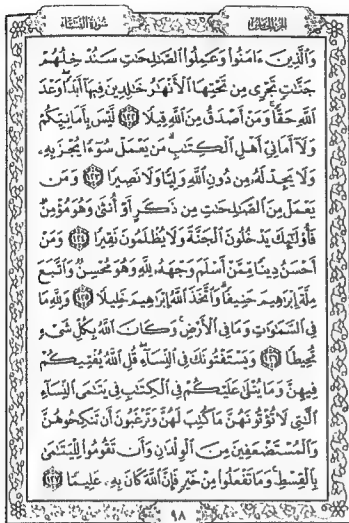 الجزء الخامس سورة النساء
وَالَّذِينَ ءَامَنُوا وَعَمِلُوا الصَّالِحَاتِ سَنُدْخِلُهُمْ
جَنَّاتٍ تَجْرِى مِن تَحْتِهَا الْأَنْهَارُ خَالِدِينَ فِيهَا أَبَدًا وَعْدَ
اللَّهِ حَقًّا وَمَنْ أَصْدَقُ مِنَ اللَّهِ قِيلًا ١٢٢ لَّيْسَ بِأَمَانِيِّكُمْ
وَلَا أَمَانِىِّ أَهْلِ الْكِتَابِ مَن يَعْمَلْ سُوءًا يُجْزَ بِهِ
وَلَا يَجِدْ لَهُ مِن دُونِ اللَّهِ وَلِيًّا وَلَا نَصِيرًا ١٢٣ وَمَن
يَعْمَلْ مِنَ الصَّالِحَاتِ مِن ذَكَرٍ أَوْ أُنثَى وَهُوَ مُؤْمِنٌ
فَأُولَئِكَ يَدْخُلُونَ الْجَنَّةَ وَلَا يُظْلَمُونَ نَقِيرًا ١٢٤ وَمَنْ
أَحْسَنُ دِينًا مِّمَّنْ أَسْلَمَ وَجْهَهُ لِلَّهِ وَهُوَ مُحْسِنٌ وَاتَّبَعَ
مِلَّةَ إِبْرَاهِيمَ حَنِيفًا وَاتَّخَذَ اللَّهُ إِبْرَاهِيمَ خَلِيلًا ١٢٥ وَلِلَّهِ مَا
فِى السَّمَاوَاتِ وَمَا فِى الْأَرْضِ وَكَانَ اللَّهُ بِكُلِّ شَىْءٍ
مُّحِيطًا ١٢٦ وَيَسْتَفْتُونَكَ فِى النِّسَاءِ قُلِ اللَّهُ يُفْتِيكُمْ
فِيهِنَّ وَمَا يُتْلَى عَلَيْكُمْ فِى الْكِتَابِ فِى يَتَامَى النِّسَاءِ
الَّاتِى لَا تُؤْتُونَهُنَّ مَا كُتِبَ لَهُنَّ وَتَرْغَبُونَ أَن تَنكِحُوهُنَّ
وَالْمُسْتَضْعَفِينَ مِنَ الْوِلْدَانِ وَأَن تَقُومُوا لِلْيَتَامَى
بِالْقِسْطِ وَمَا تَفْعَلُوا مِنْ خَيْرٍ فَإِنَّ اللَّهَ كَانَ بِهِ عَلِيمًا ١٢٧
٩٨